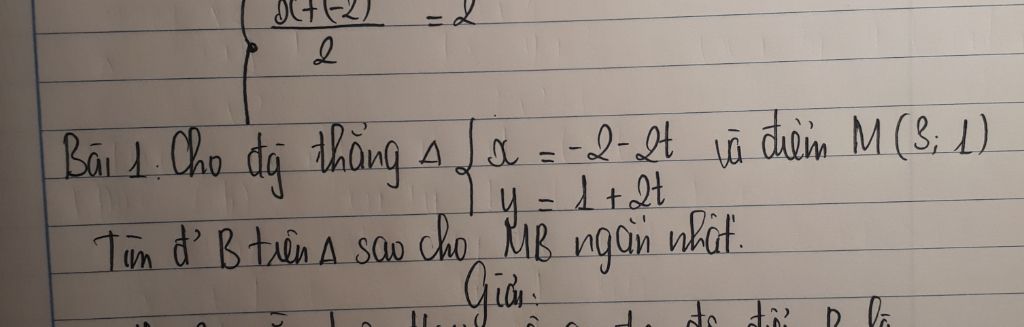 x+(-2)
= 2
2
Bài 1: Cho đg thẳng Δ { x = -2-2t và điểm M(3; 1)
y = 1 + 2t
Tìm đ' B trên Δ sao cho MB ngắn nhất.
Giải: